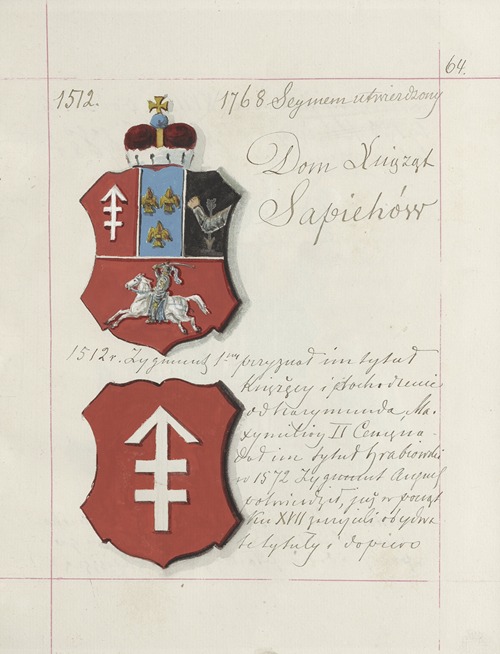 64.
1512. 1768 Seymem utwierdzony
Dom Xsiążąt
Sapiehów
1512 r. Zygmunt 1szy przyznał im tytuł
Książęcy i pochodzenie
od Narymunda, Ma-
xymilian II
dał im tytuł hrabiowski
w 1572 Zygmunt August
potwierdził, już w począt
ku XVII przyjęli obydwa
te tytuły i dopiero